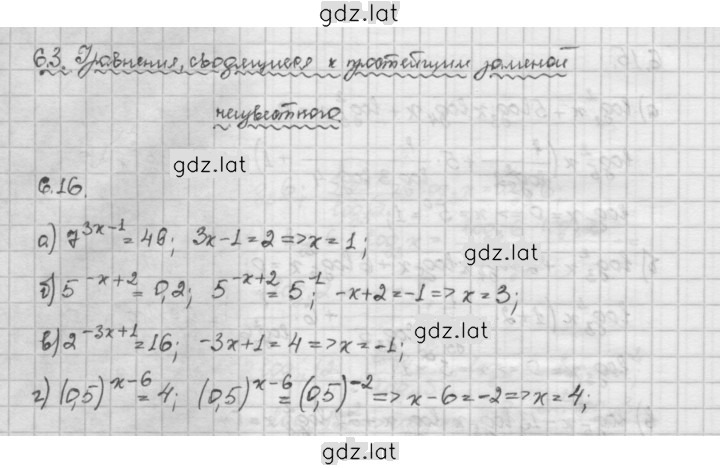 gdz.lat
6.3. Уравнения, сводящиеся к простейшим заменой
неизвестного.
gdz.lat
6.16.
а) 7^{3x-1} = 49; 3x-1=2 => x=1;
gdz.lat
б) 5^{-x+2} = 0,2; 5^{-x+2} = 5^{-1}; -x+2=-1 => x=3;
gdz.lat
в) 2^{-3x+1} = 16; -3x+1=4 => x=-1;
г) (0,5)^{x-6} = 4; (0,5)^{x-6} = (0,5)^{-2} => x-6=-2 => x=4;
gdz.lat